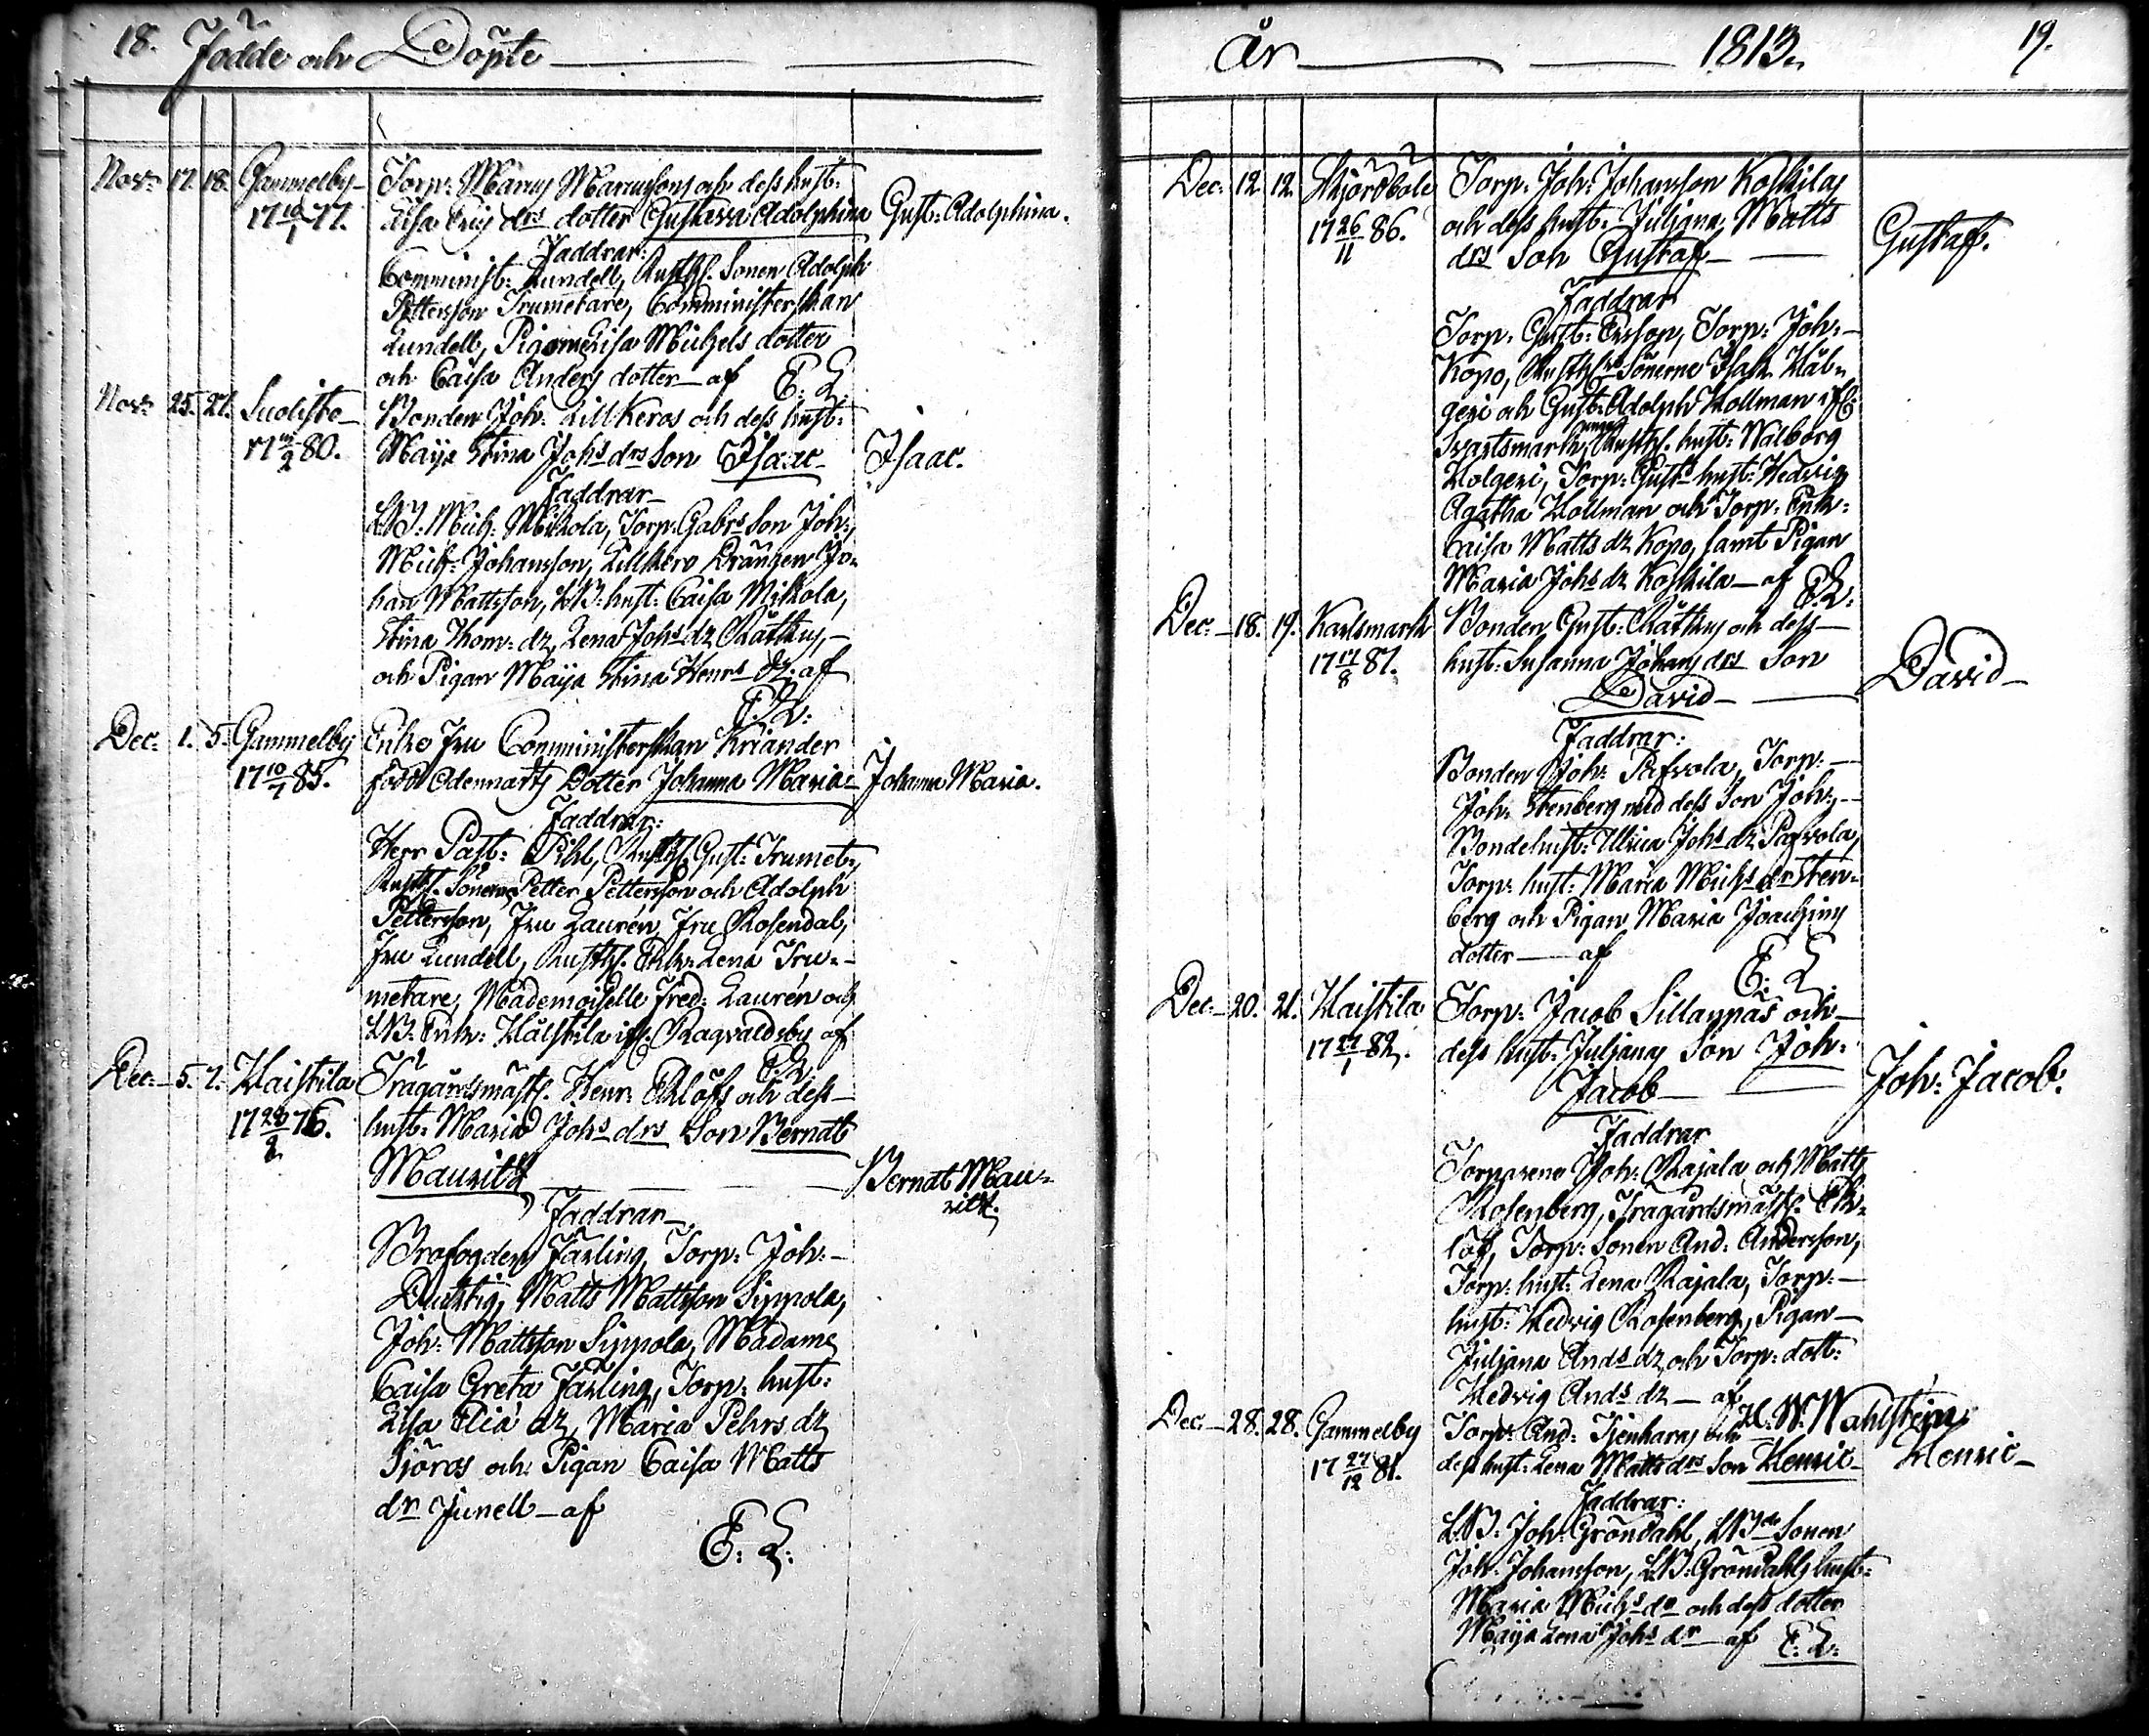 18. Födde och Döpte
Nov: 17. 18. Gammelby Torp: Marcus Marcussons och dess hust:
17 10/1 77. Lisa Erics drs dotter Gustava Adolphina Gust: Adolphina.
Faddrar:
Comminist: Lundell, Rusth. Sonen Adolph
Pettersson Trumetare, Comministerskan
Lundell, Pigorne Lisa Michels dotter
och Caisa Anders dotter af E: L.
Nov: 25. 27. Suolisto Bonden Joh: Lill Keros och dess hust:
80. Maija Stina Johs drs Son Isaac Isaac.
Faddrar
Mich: Mikola, Torp: Gabrs Son Joh:,
Mich: Johansson, Lillkero Drängen Jo-
han Mattsson, hust: Caisa Mikola,
Stina Thom: dr, Lena Johs dr Rättkys,
och Pigan Maija Stina Henrs dr af
E. L:
Dec: 1. 5. Gammelby Enke Fru Comministerskan Kriander
17 10/7 85. född Adenmarks Dotter Johanna Maria Johanna Maria.
Faddrar:
Herr Past: Pihl, Rusth. Gust: Trumet:,
Rusth. Sönerne Petter Pettersson och Adolph
Pettersson, Fru Laurén, Fru Rosendal,
Fru Lundell, Rusth. Enk: Lena Tru-
metare, Mademoiselle Fred: Laurén och
Enk: Haistila Ragvaldsby af
E L.
Dec: 5. 7. Haistila Trägårdsmäst. Henr: Eklöfs och dess
17 28/9 76. hust: Maria Johs drs Son Berndt
Mauritz Berndt Mau-
ritz.
Faddrar
Brofogden Färling, Torp: Joh:
Matts Mattsson Sippola,
Joh: Mattsson Sippola, Madame
Caisa Greta Färling, Torp: hust:
Lisa Elia dr, Maria Pehrs dr
Sjöros och Pigan Caisa Matts
dr Junell af
E: L:
År 1813. 19.
Dec: 12. 12. Skjordbole Torp: Joh: Johansson Koskilas
17 26/11 86. och dess hust: Juliana Matts
drs Son Gustaf Gustaf.
Faddrar
Torp: Gust: Ersson, Torp: Joh:
Kopo, Rusth. Sönerne Isak Häl-
geri och Gust: Adolph Hollman
Svartsmark, Rusth. hust: Walborg
Holgeri, Torp: Gusts hust: Hedvig
Agatha Hollman och Torp: Enk:
Caisa Matts dr Kopo, samt Pigan
Maria Johs dr Koskila af E. L:
Dec: 18. 19. Karlsmark Bonden Gust: Rättkys och dess
17 17/8 87. hust: Susanna Johans drs Son
David David
Faddrar:
Bonden Joh: Pafvola, Torp:
Joh: Stenberg med dess Son Joh:,
Bondehust: Ulrica Johs dr Pafvola,
Torp: hust: Maria Michs dr Sten-
berg och Pigan Maria Joachims
dotter af E: L.
Dec: 20. 21. Haistila Torp: Jacob Sillanpäs och
17 27/1 82. dess hust: Julianas Son Joh:
Jacob Joh: Jacob.
Faddrar
Torparene Joh: Rajala och Matts
Rosenberg, Trägårdsmäst. Ek-
löf, Torp: Sonen And: Andersson,
Torp: hust: Lena Rajala, Torp:
hust: Hedvig Rosenberg, Pigan
Juliana Ands dr och Torp: dott:
Hedvig Ands dr af H. W. Wahlstein
Dec: 28. 28. Gammelby Torp: And: Tjenharas och
17 27/12 81. dess hust: Lena Matts drs Son Henric Henric
Faddrar:
Joh: Gröndahl, Sonen
Joh: Johansson, Gröndahls hust:
Maria Michs dr och dess dotter
Maija Lena Johs dr af E. L: